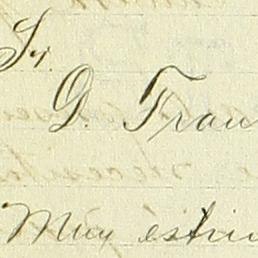 Sr.
D. Fran
Muy estim